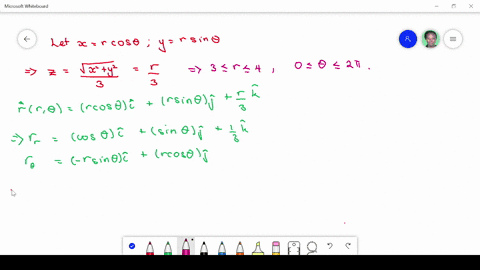 Microsoft Whiteboard
Let x = r cosθ ; y = r sinθ
⇒ z = √(x²+y²)/3 = r/3 ⇒ 3 ≤ r ≤ 4 , 0 ≤ θ ≤ 2π .
r̂(r,θ) = (r cosθ)î + (r sinθ)ĵ + r/3 k̂
⇒ r_r = (cosθ)î + (sinθ)ĵ + 1/3 k̂
r_θ = (-r sinθ)î + (r cosθ)ĵ